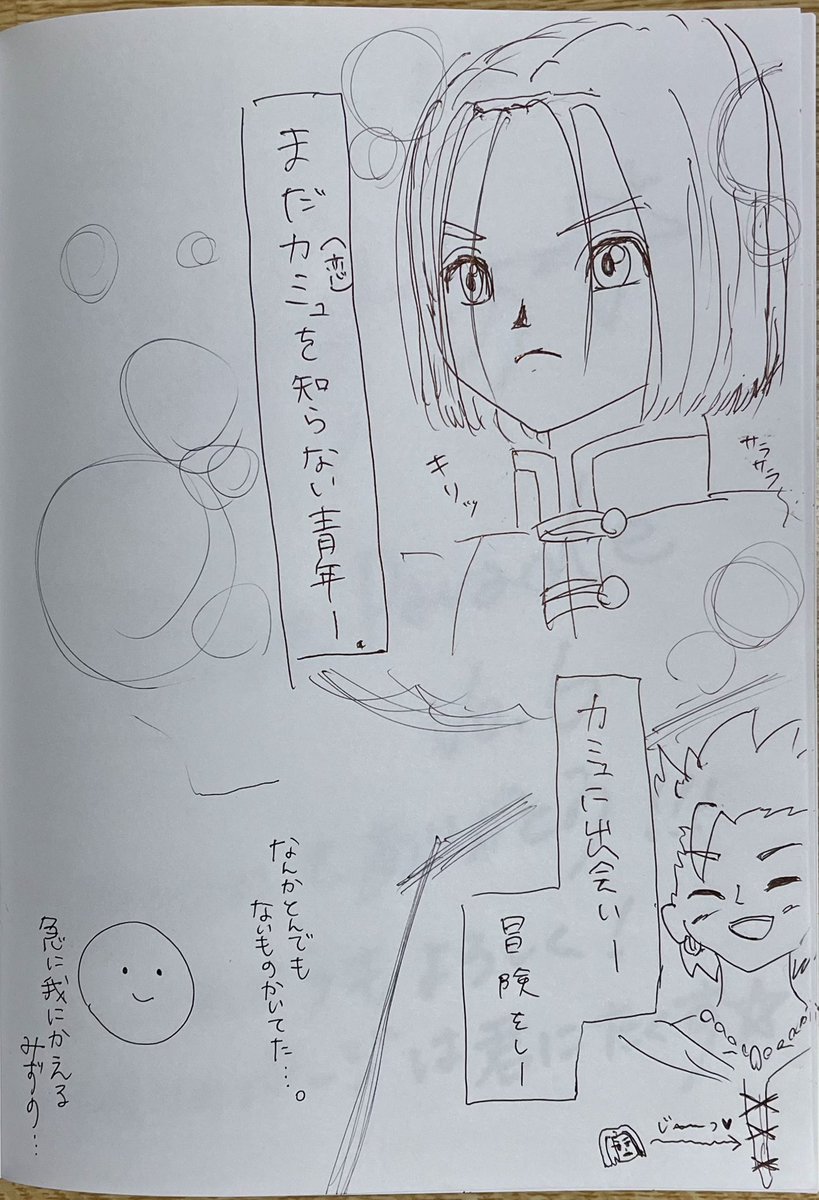 まだカミュを知らない青年ー
(恋)
サラサラ
キリッ
カミュに出会いー
冒険をしー
じーっ♥
なんかとんでも
ないものかいてた…。
急に我にかえる
みずの…